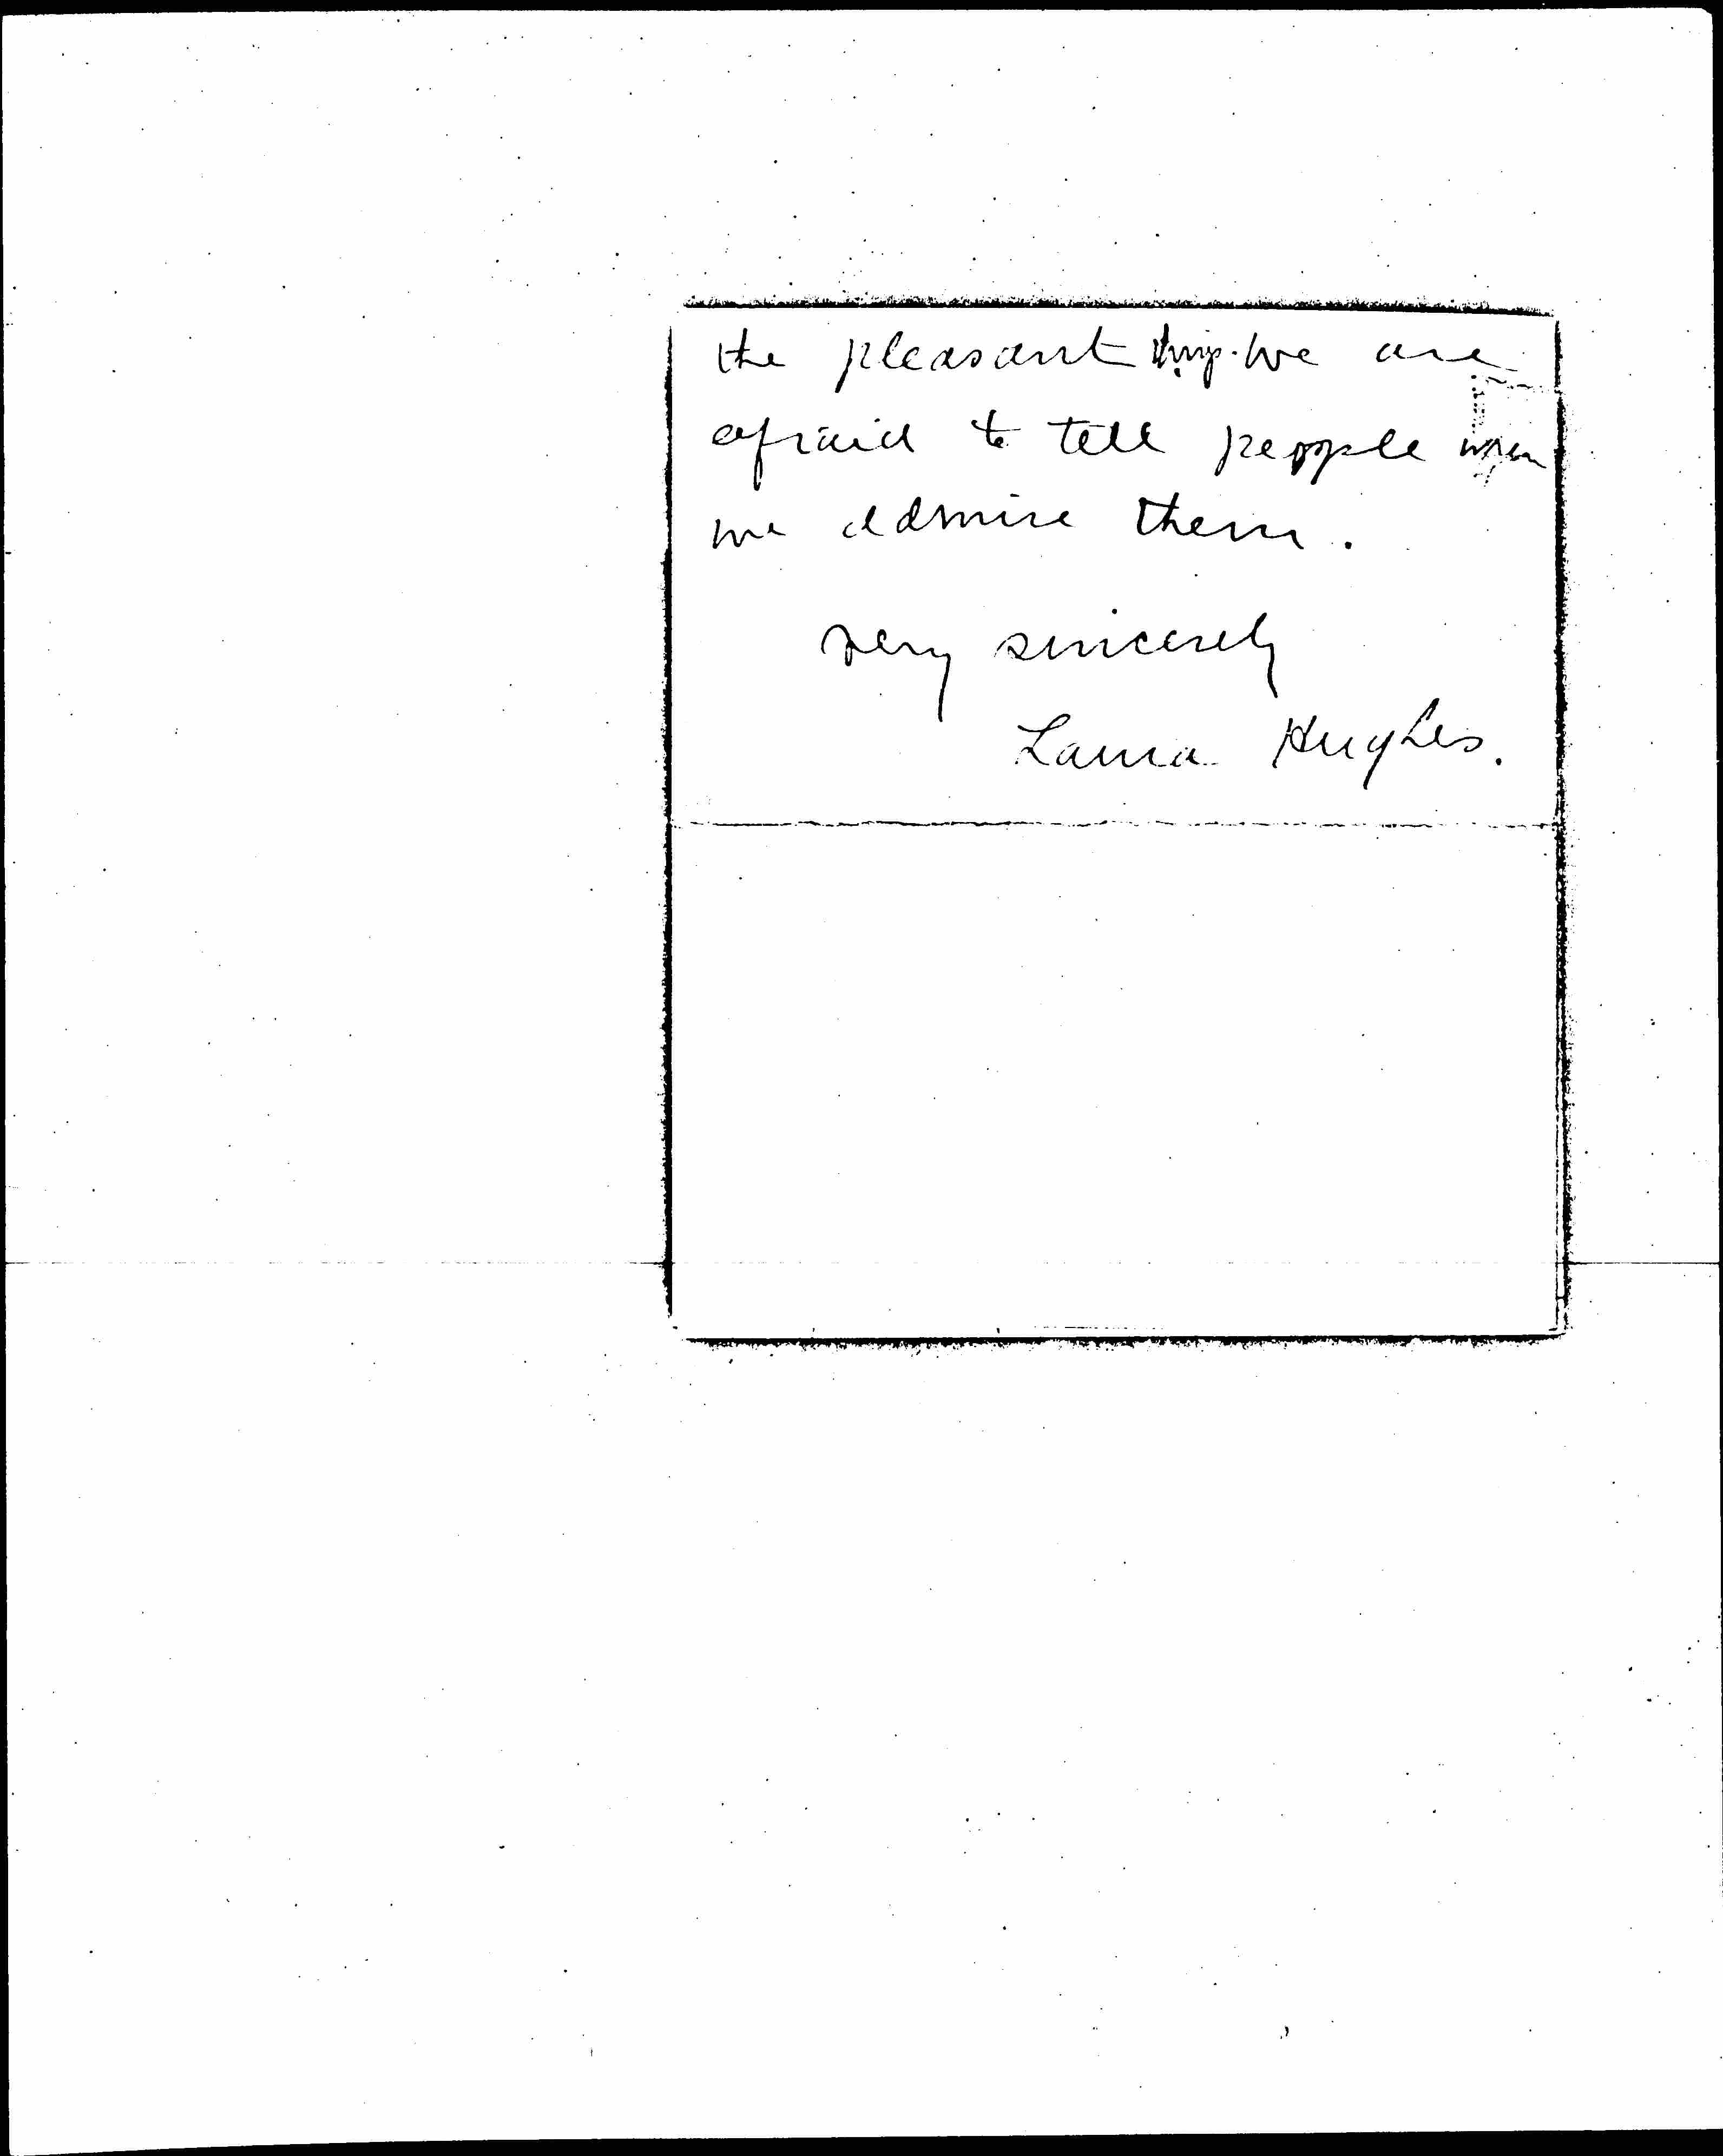 the pleasant things we are
afraid to tell people when
we admire them.
very sincerely
Laura Hughes.